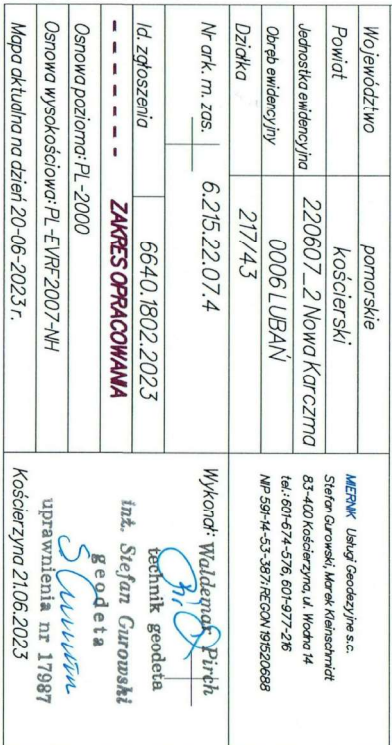 Województwo pomorskie
Powiat kościerski
Jednostka ewidencyjna 220607_2 Nowa Karczma
Obręb ewidencyjny 0006 LUBAŃ
Działka 217/43
Nr ark. m. zas. 6.215.22.07.4
Id. zgłoszenia 6640.1802.2023
ZAKRES OPRACOWANIA
Osnowa pozioma: PL-2000
Osnowa wysokościowa: PL-EVRF2007-NH
Mapa aktualna na dzień 20-06-2023 r.
MIERNIK Usługi Geodezyjne s.c.
Stefan Gurowski, Marek Kleinschmidt
83-400 Kościerzyna, ul. Wodna 14
tel.: 601-674-576, 601-977-216
NIP 591-14-53-387; REGON 191520688
Wykonał: Waldemar Pirch
technik geodeta
inż. Stefan Gurowski
geodeta
uprawnienia nr 17987
Kościerzyna 21.06.2023